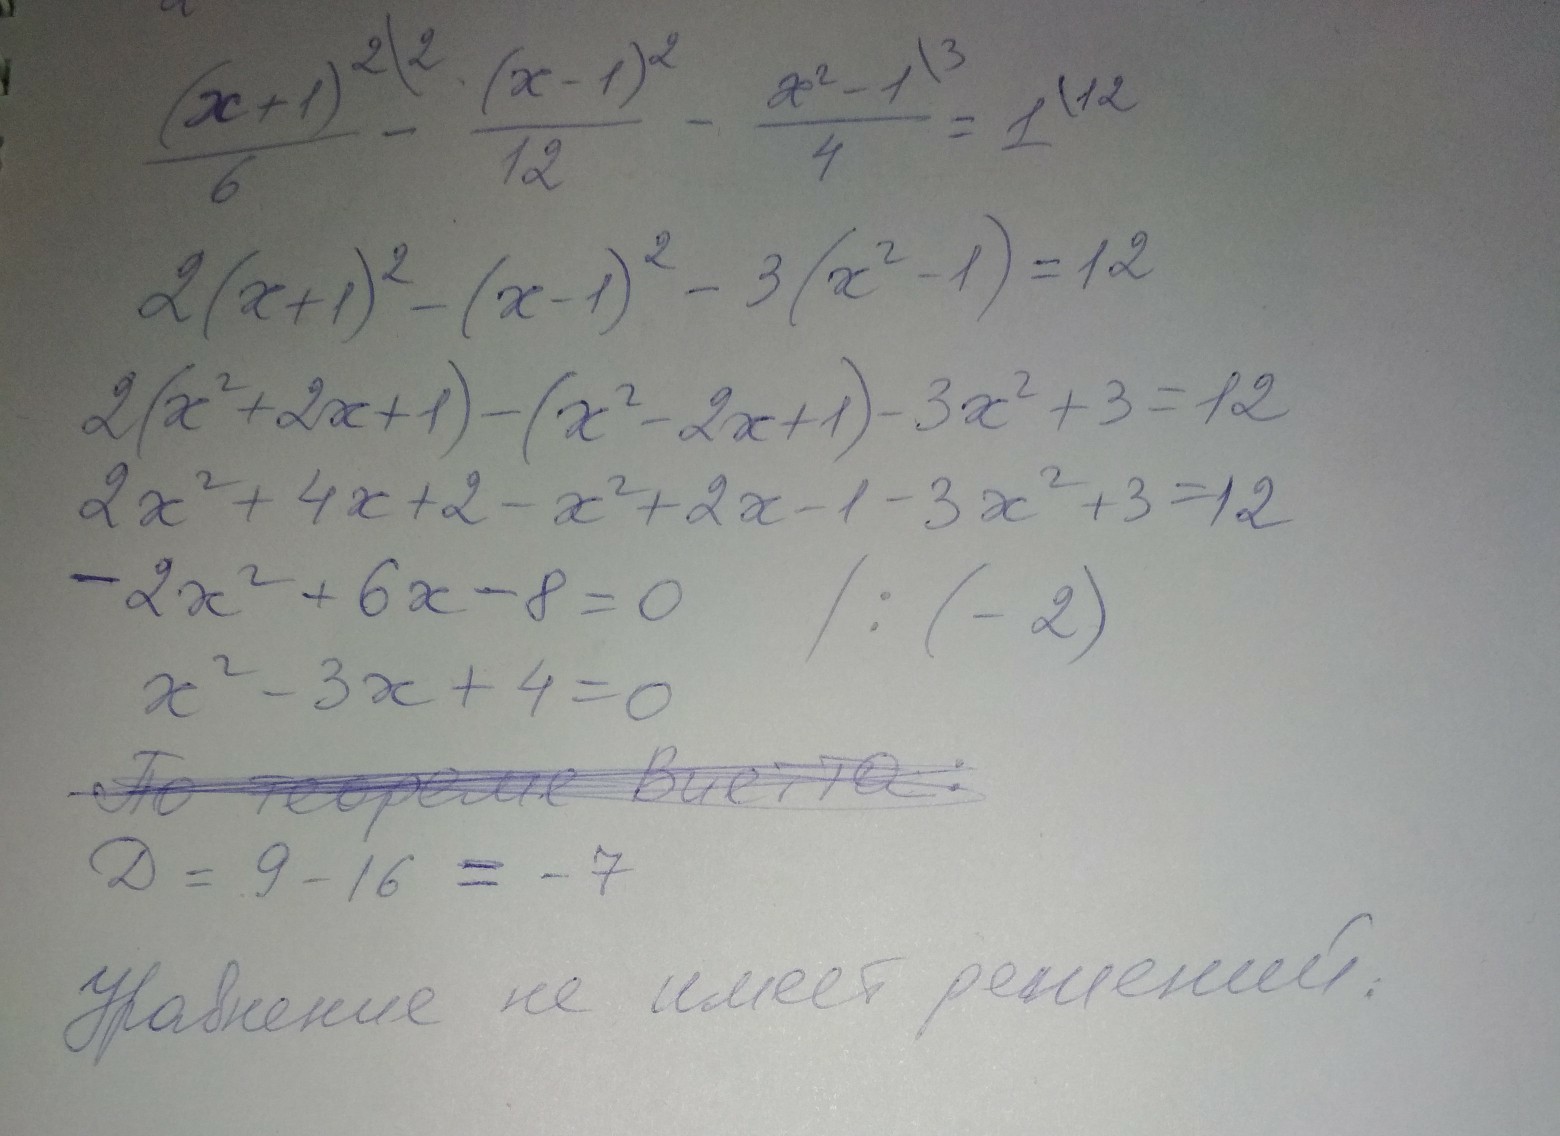 (x+1)²\2/6 - (x-1)²/12 - x²-1\3/4 = 1\12
2(x+1)² - (x-1)² - 3(x²-1) = 12
2(x²+2x+1) - (x²-2x+1) - 3x²+3 = 12
2x²+4x+2-x²+2x-1-3x²+3=12
-2x²+6x-8=0 /:(-2)
x²-3x+4=0
По теореме Виетта:
Д = 9-16 = -7
Уравнение не имеет решений.